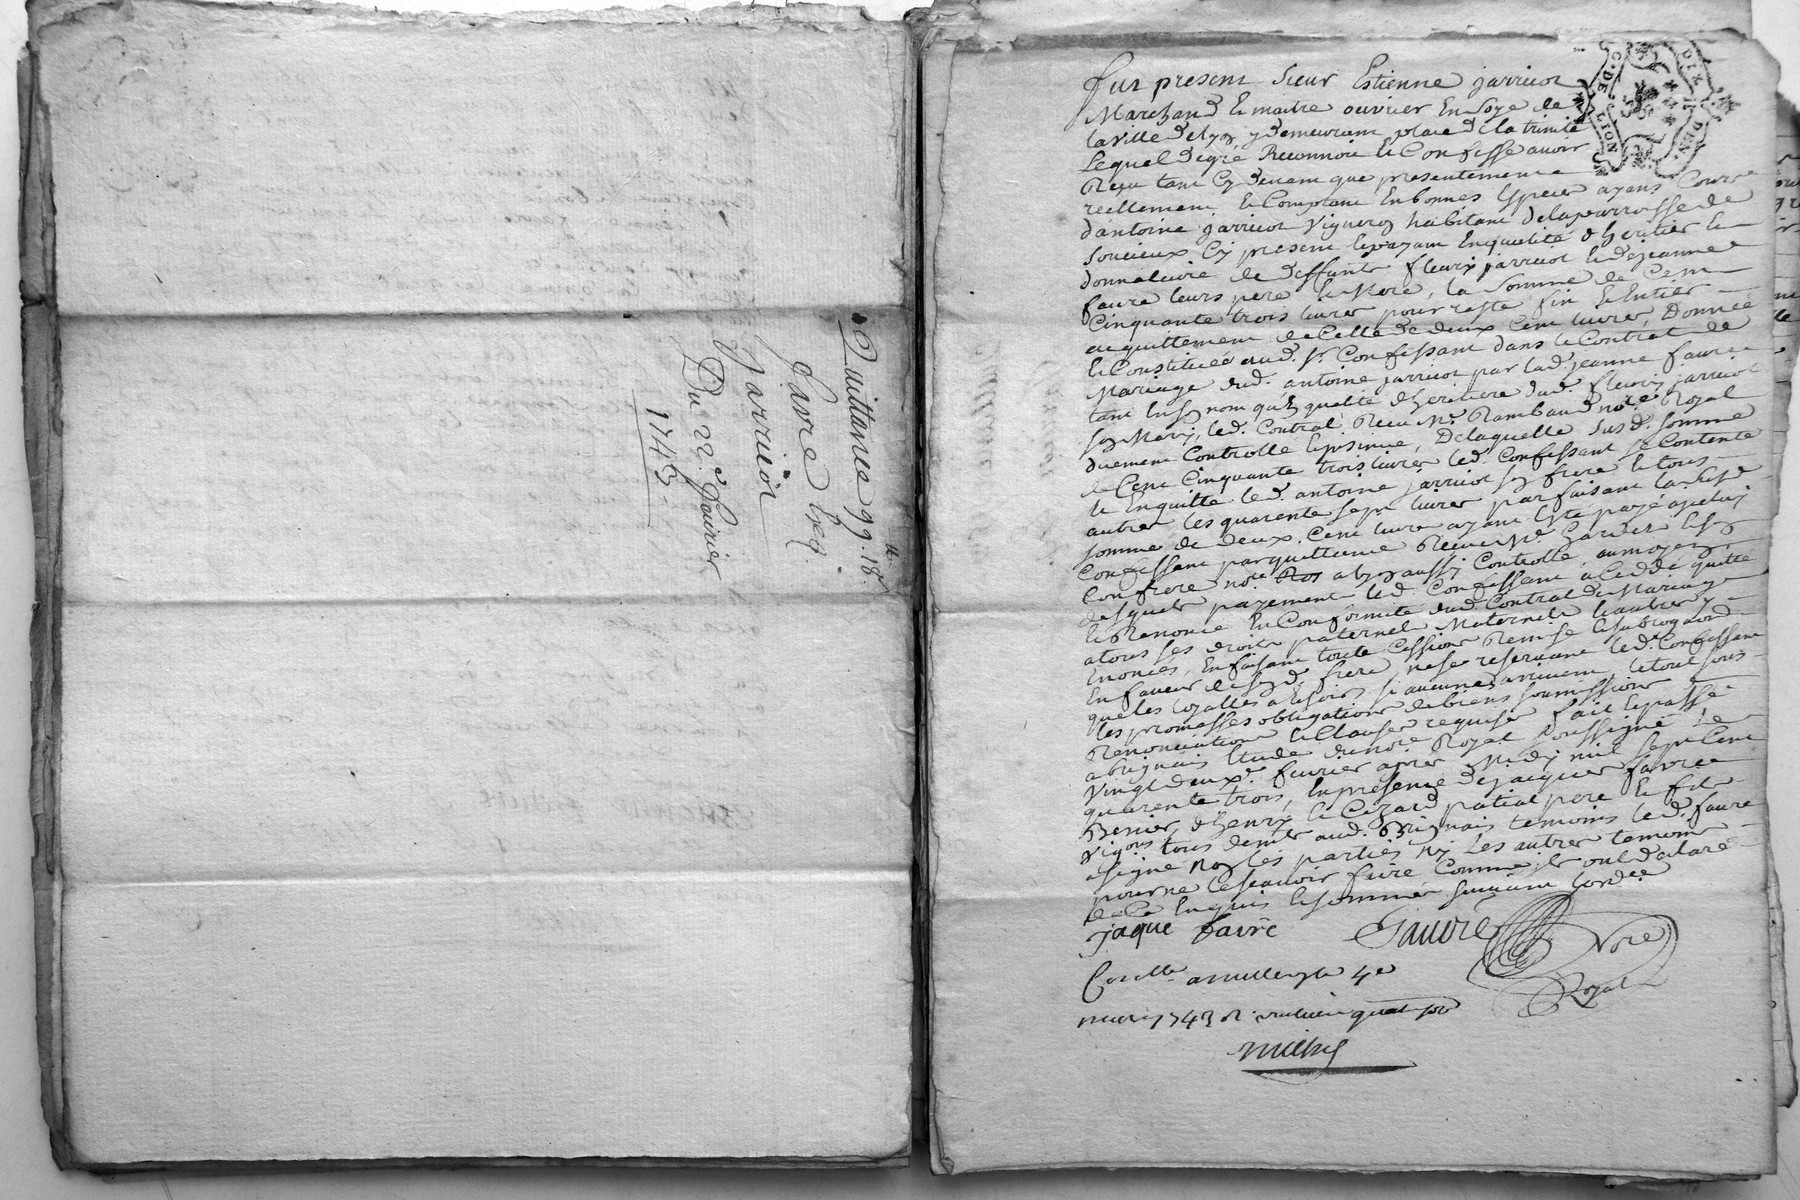 Quittance 99.tt 18.s
favre les
Jarricot
Du 22.e fevrier
1743.
GEN. DE LION
DIX. DEN.
fut present sieur Estienne jarricot
Marchand et maitre ouvrier En soye de
la ville de lyon y demeurant place de la trinité
Lequel de gré Reconnoit et Confesse avoir
Reçu tant Cy devant que presentement
réellement et Comptant En bonnes Especes ayant Cours
d'antoine jarricot vigneron habitant de la parroisse de
soucieux Cy present Et payant En qualité d'heritier et
donnataire de deffunt fleury jarricot et de jeanne
faure leurs pere et Mere, la somme de Cent
Cinquante trois livres pour reste fin et Entier
acquittement de Celle de deux Cent livres, Donnée
et Constituée aud. sr. Confessant dans le Contrat de
Mariage dud. antoine jarricot par lad. jeanne faure
tant En son nom qu'En qualité d'heritiere dud. fleury jarricot
son Mary, led. Contrat Recu Me. Rambaud no.re Royal
duement Controllé et insinué, De laquelle susd. somme
de Cent Cinquante trois livres led. Confessant se Contente
et En quitte led. antoine jarricot son frere et tous
autres les quarante sept livres parfaisant lad. susd.
somme de deux Cent livres ayant Esté payé aud.
Confessant par quittance Recue Me.
Confrere no.re aussy Controllé, au moyen
desquels payements led. Confessant a Cedé quitté
et Renoncé En Conformité dud. Contrat de Mariage
a tous ses droits paternels Maternels et autres y
Enoncés, En faisant toute Cession Remise et subrogation
En faveur de sond. frere ne se reservant led. Confessant
que les loyalles Eschoirs si aucunes aviennent, le tout sous
les promesses obligations de biens soumissions
Renonciations et Clauses requises fait et passé
a brignais Etude du no.re Royal soussigné Le
vingt deux.e fevrier apres Midy mil sept Cent
quarante trois, En presence de jacques favre
d'henry et Cezard patial pere et fils
vig.ons tous dem.ts aud. Brignais temoins led. favre
a signé non les parties ny Les autres temoins
pour ne le scavoir faire Comme ils ont declaré
de Ce Enquis et sommés suivant l'ord.ce
jaque favre
faure No.re Royal
Con.lle a millery le 4e
mars 1743 R. vintcinq